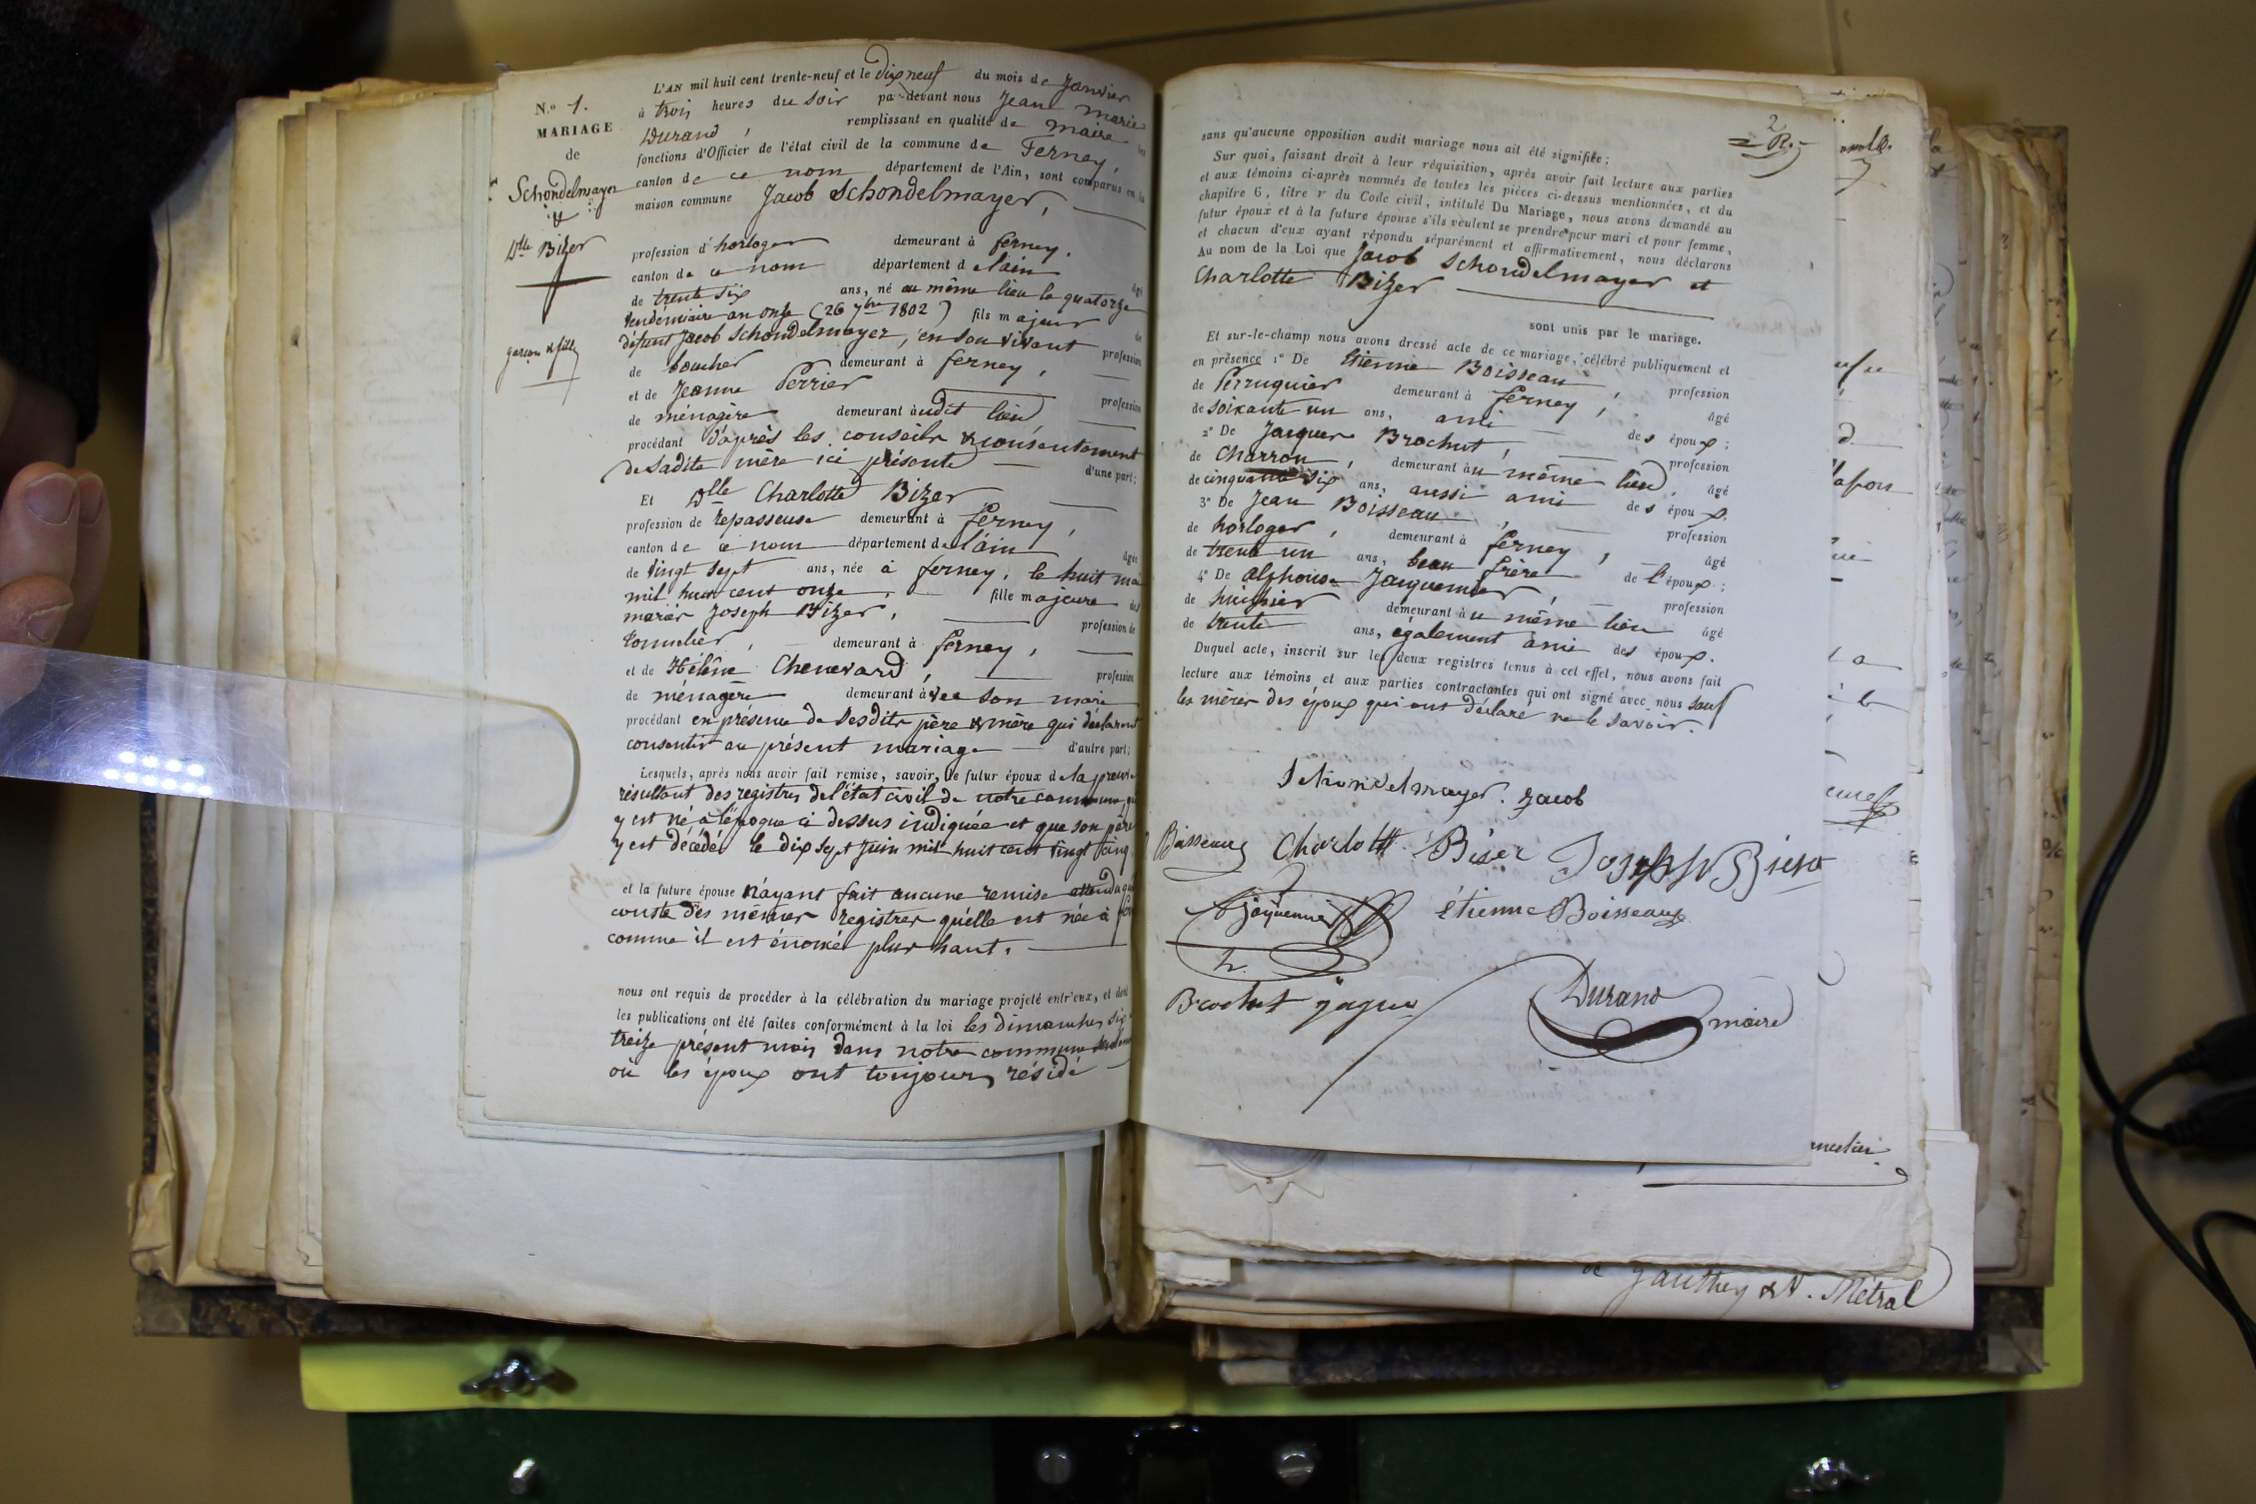 N.o 1.
MARIAGE
de
Schondelmayer
&
Dlle Bizer
garçon & fille
L'AN mil huit cent trente-neuf et le dix neuf du mois de Janvier
à trois heures du soir par-devant nous Jean Marie
Durand, remplissant en qualité de maire les
fonctions d'Officier de l'état civil de la commune de Ferney,
canton de ce nom département de l'Ain, sont comparus en la
maison commune Jacob Schondelmayer,
profession d'horloger demeurant à ferney,
canton de ce nom département de l'ain âgé
de trente six ans, né au même lieu le quatorze
vendémiaire an onze (26 7bre 1802) fils majeur de
défunt Jacob Schondelmayer, en son vivant profession
de boucher demeurant à ferney,
et de Jeanne Perrier profession
de ménagère demeurant audit lieu
procédant d'après les conseils & consentement
de sadite mère ici présente d'une part;
Et Dlle Charlotte Bizer
profession de repasseuse demeurant à ferney,
canton de ce nom département de l'ain âgée
de vingt sept ans, née à ferney, le huit mai
mil huit cent onze, fille majeure des
mariés Joseph Bizer, profession de
tonnelier, demeurant à ferney,
et de Hélène Chenevard, profession
de ménagère demeurant avec son mari
procédant en présence de sesdits père & mère qui déclarent
consentir au présent mariage d'autre part;
Lesquels, après nous avoir fait remise, savoir, le futur époux de la preuve
résultant des registres de l'état civil de notre commune, qu'il
y est né à l'époque ci dessus indiquée et que son père
y est décédé le dix sept Juin mil huit cent vingt cinq
et la future épouse n'ayant fait aucune remise attendu qu'il
conste des mêmes registres qu'elle est née à
comme il est énoncé plus haut.
nous ont requis de procéder à la célébration du mariage projeté entr'eux, et dont
les publications ont été faites conformément à la loi les dimanches six
treize présent mois dans notre commune
où les époux ont toujours résidé
2
R.
sans qu'aucune opposition audit mariage nous ait été signifiée;
Sur quoi, faisant droit à leur réquisition, après avoir fait lecture aux parties
et aux témoins ci-après nommés de toutes les pièces ci-dessus mentionnées, et du
chapitre 6, titre v du Code civil, intitulé Du Mariage, nous avons demandé au
futur époux et à la future épouse s'ils veulent se prendre pour mari et pour femme,
et chacun d'eux ayant répondu séparément et affirmativement, nous déclarons
Au nom de la Loi que Jacob Schondelmayer et
Charlotte Bizer
sont unis par le mariage.
Et sur-le-champ nous avons dressé acte de ce mariage, célébré publiquement et
en présence 1° De Etienne Boisseau, profession
de Perruquier demeurant à ferney, âgé
de soixante un ans, ami des époux;
2° De Jacques Brochut, profession
de Charron, demeurant au même lieu, âgé
de cinquante six ans, aussi ami des époux.
3° De Jean Boisseau, profession
de horloger, demeurant à ferney, âgé
de trente un ans, beau frère de l'époux;
4° De alphonse Jacquemier, profession
de huissier demeurant au même lieu âgé
de trente ans, également ami des époux.
Duquel acte, inscrit sur les deux registres tenus à cet effet, nous avons fait
lecture aux témoins et aux parties contractantes qui ont signé avec nous sauf
les mères des époux qui ont déclaré ne le savoir.
Schondelmayer. Jacob
Boisseau Charlotte Biser Joseph
Jaquemier Étienne Boisseau
h.
Brochut Durand
maire
Gauthey & N. Métral